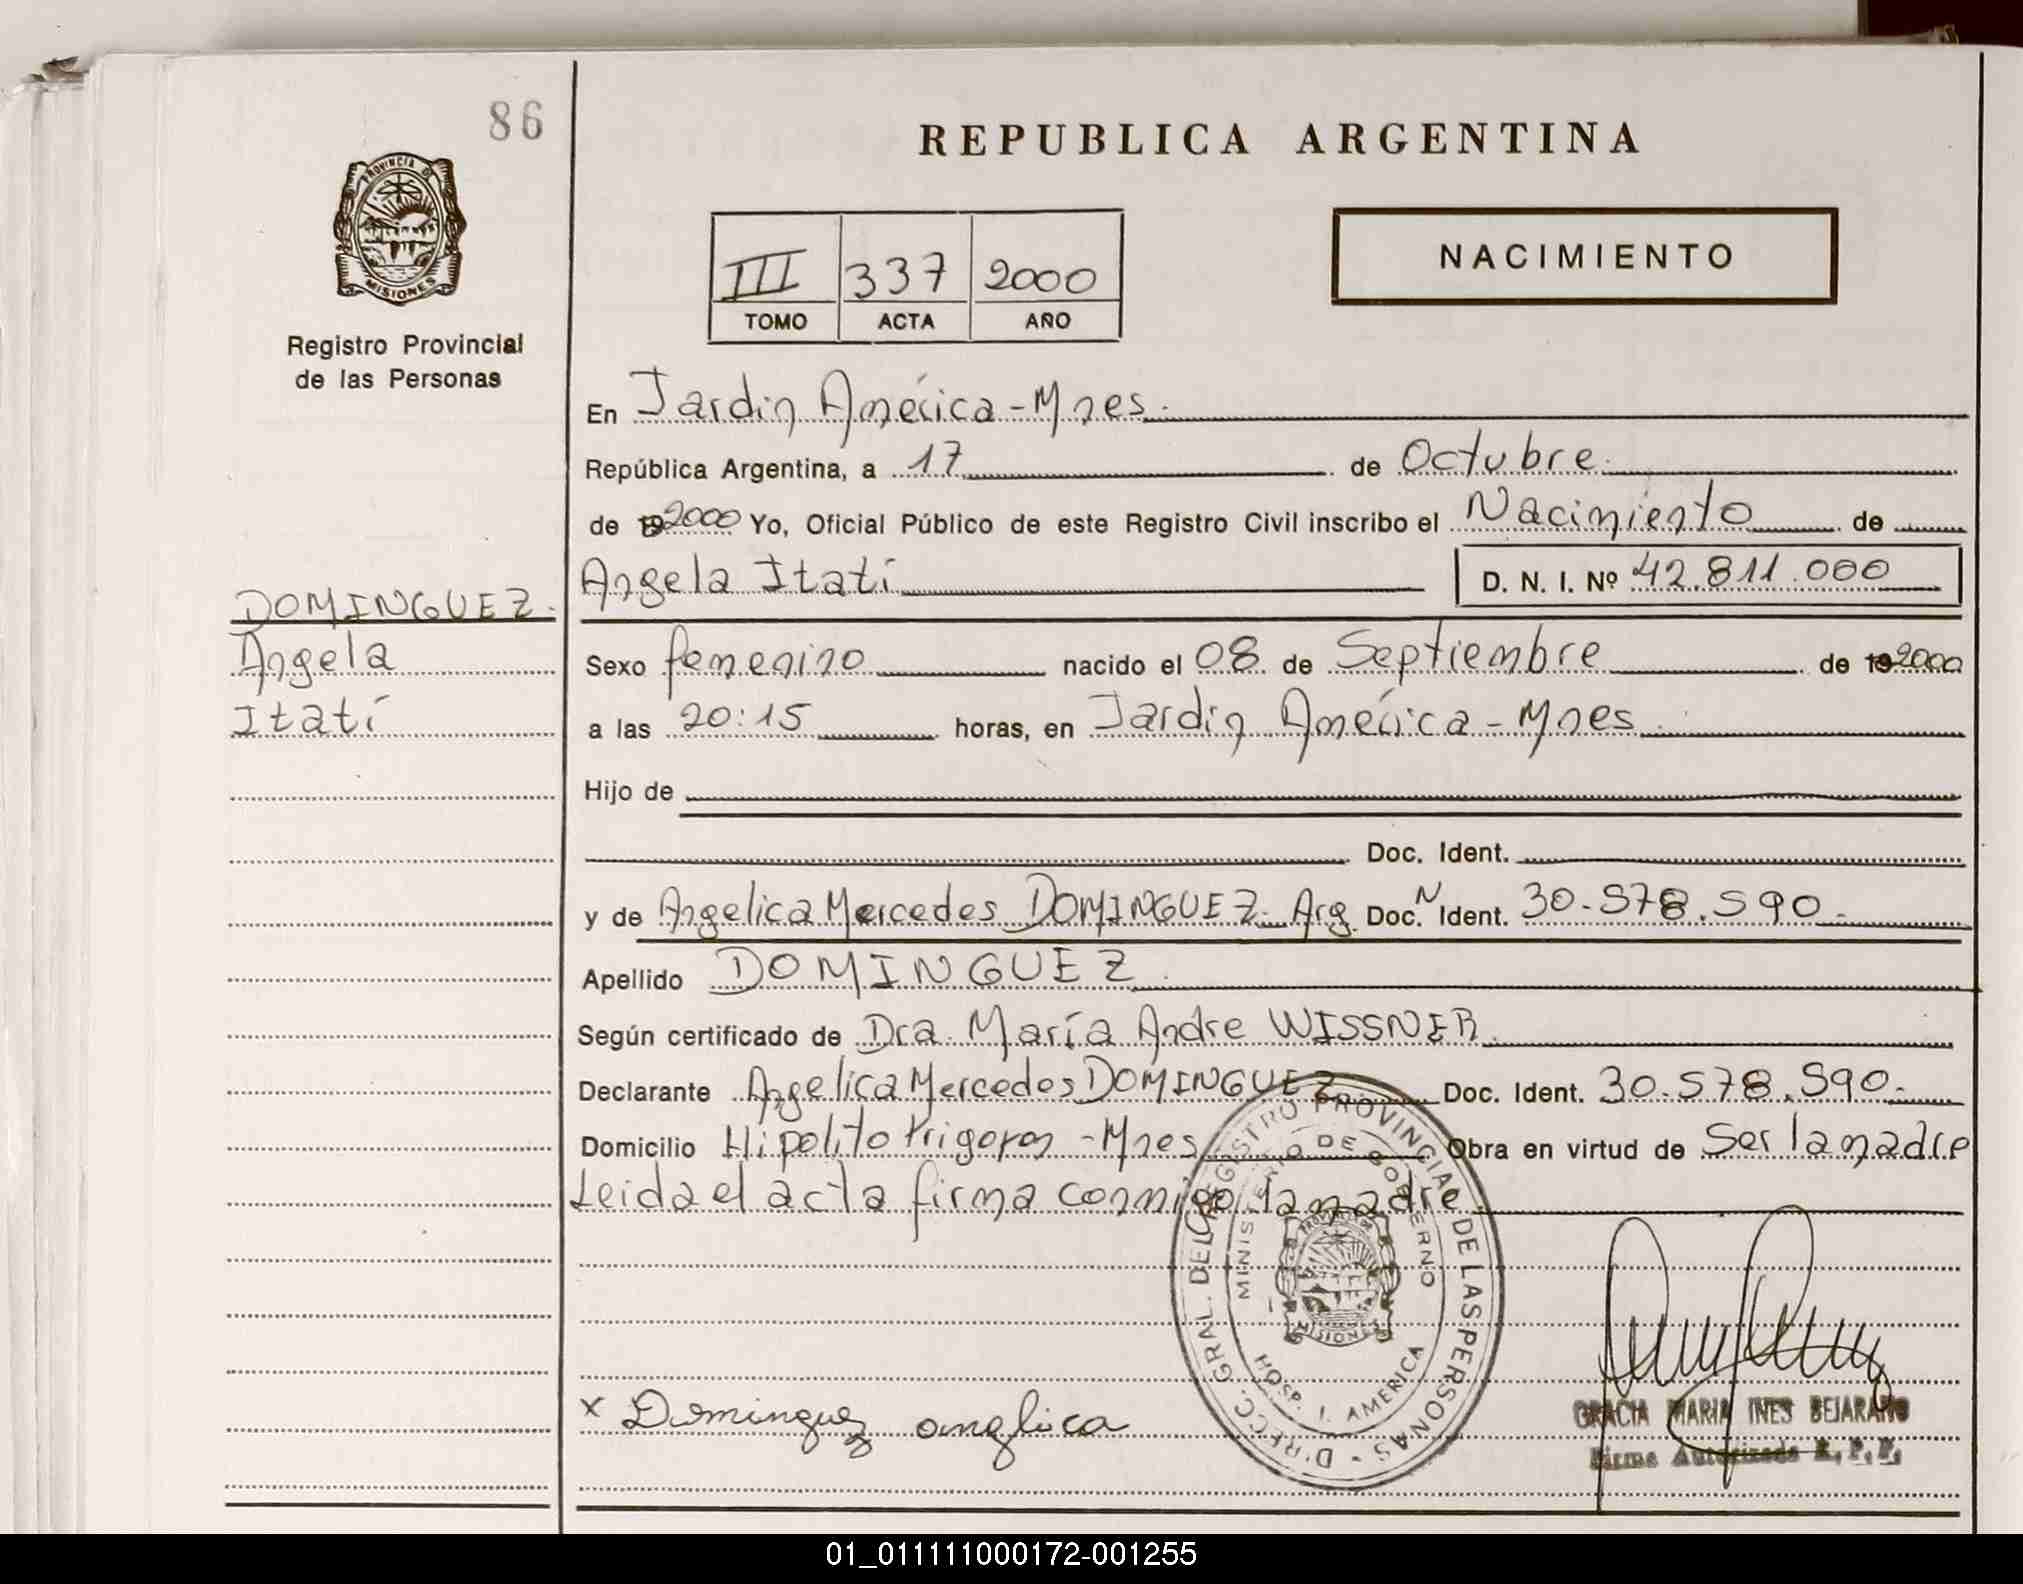 86
REPUBLICA ARGENTINA
PROVINCIA DE
MISIONES
Registro Provincial
de las Personas
III 337 2000
TOMO ACTA AÑO
NACIMIENTO
En Jardin América - Mnes.
República Argentina, a 17 de Octubre
de 19 2000 Yo, Oficial Público de este Registro Civil inscribo el Nacimiento de
Angela Itatí D. N. I. Nº 42.811.000
DOMINGUEZ.
Angela
Itatí
Sexo femenino nacido el 08 de Septiembre de 19 2000
a las 20:15 horas, en Jardin América - Mnes.
Hijo de
Doc. Ident.
y de Angelica Mercedes DOMINGUEZ - Arg. Doc. N Ident. 30.578.590.
Apellido DOMINGUEZ.
Según certificado de Dra. María Andre WISSNER.
Declarante Angelica Mercedes DOMINGUEZ Doc. Ident. 30.578.590.
Domicilio Hipolito Yrigoyen - Mnes Obra en virtud de Ser la madre
Leida el acta firma conmigo la madre.
DIRECC. GRAL. DEL REGISTRO PROVINCIAL DE LAS PERSONAS -
MINISTERIO DE GOBIERNO
PROVINCIA DE
MISIONES
HOSP. J. AMERICA
x Dominguez anglica
GRACIA MARIA INES BEJARANO
Firma Autorizada R. P. P.
01_011111000172-001255